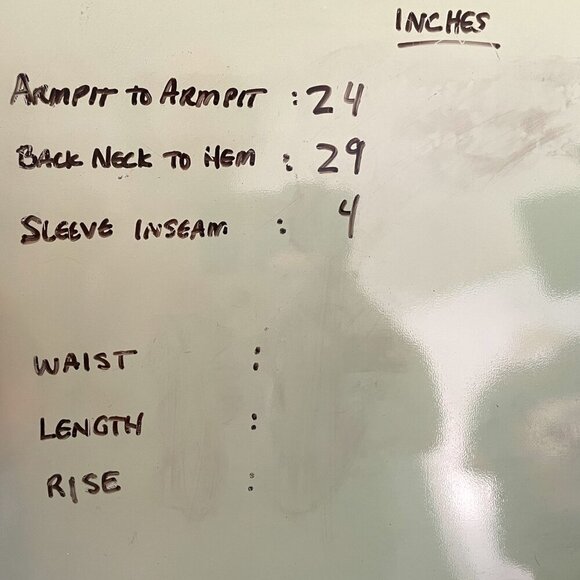 INCHES
ARMPIT TO ARMPIT : 24
BACK NECK TO HEM : 29
SLEEVE INSEAM : 4
WAIST :
LENGTH :
RISE :